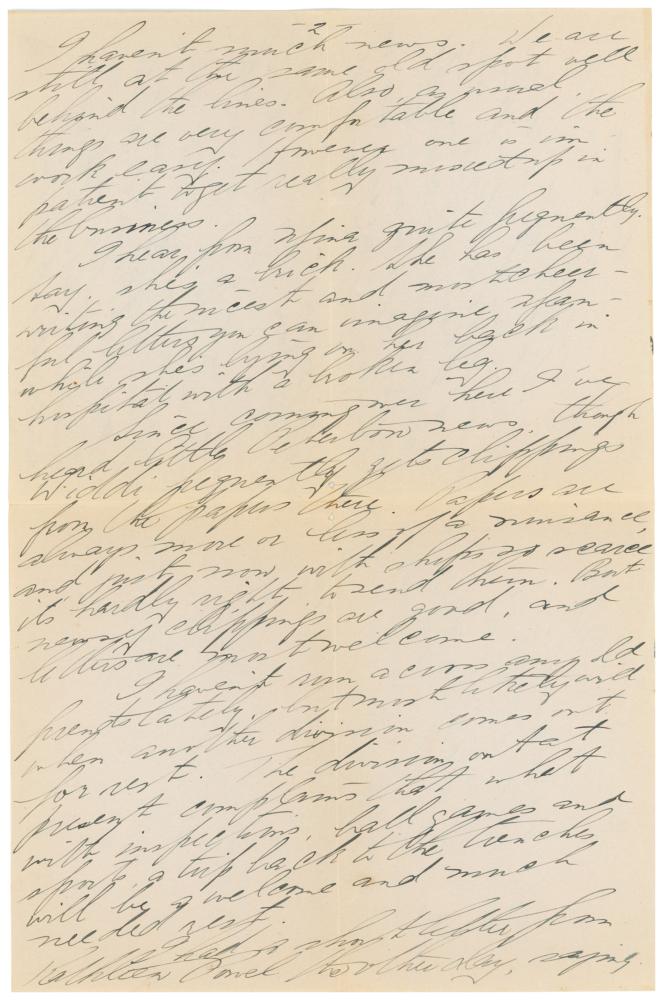 -2-
I haven't much news. We are
still at the same old spot well
behind the lines. Also, as usual,
things are very comfortable and the
work easy. However one is im-
patient to get really mixed up in
the business.
I hear from quite frequently.
Say, she's a brick. She has been
writing the nicest and most cheer-
ful letters you can imagine,
while she's lying on her back in
hospital with a broken leg.
Since coming over here I've
heard little news, though
Widdi frequently gets clippings
from the papers there. Papers are
always more or less of a nuisance,
and just now with ships so scarce
its hardly right to send them. But
newsy clippings are good, and
letters are most welcome.
I haven't run across any old
friends lately, but most likely will
when another division comes out
for rest. The division out at
present complains that what
with inspections, ball games and
sports, a trip back to the trenches
will be a welcome and much
needed rest.
I had a short letter from
Kathleen the other day, saying